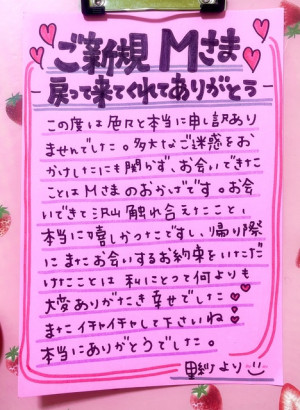 ご新規 Mさま
戻って来てくれてありがとう
この度は色々と本当に申し訳あり
ませんでした。多大なご迷惑をお
かけしたにも関かず、お会いできた
ことはMさまのおかげです。お会
いできて沢山触れ合えたこと、
本当に嬉しかったですし、帰り際
にまたお会いするお約束をいただ
けたことは 私にとって何よりも
大変ありがたき幸せでした
またイチャイチャして下さいね
本当にありがとうでした。
より